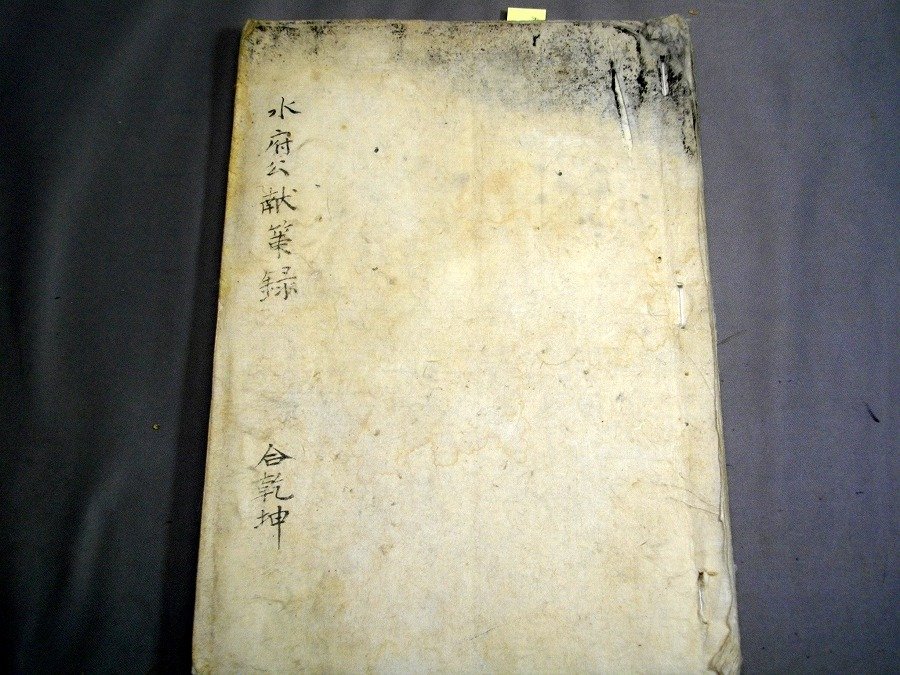 水府公献策録
合乾坤